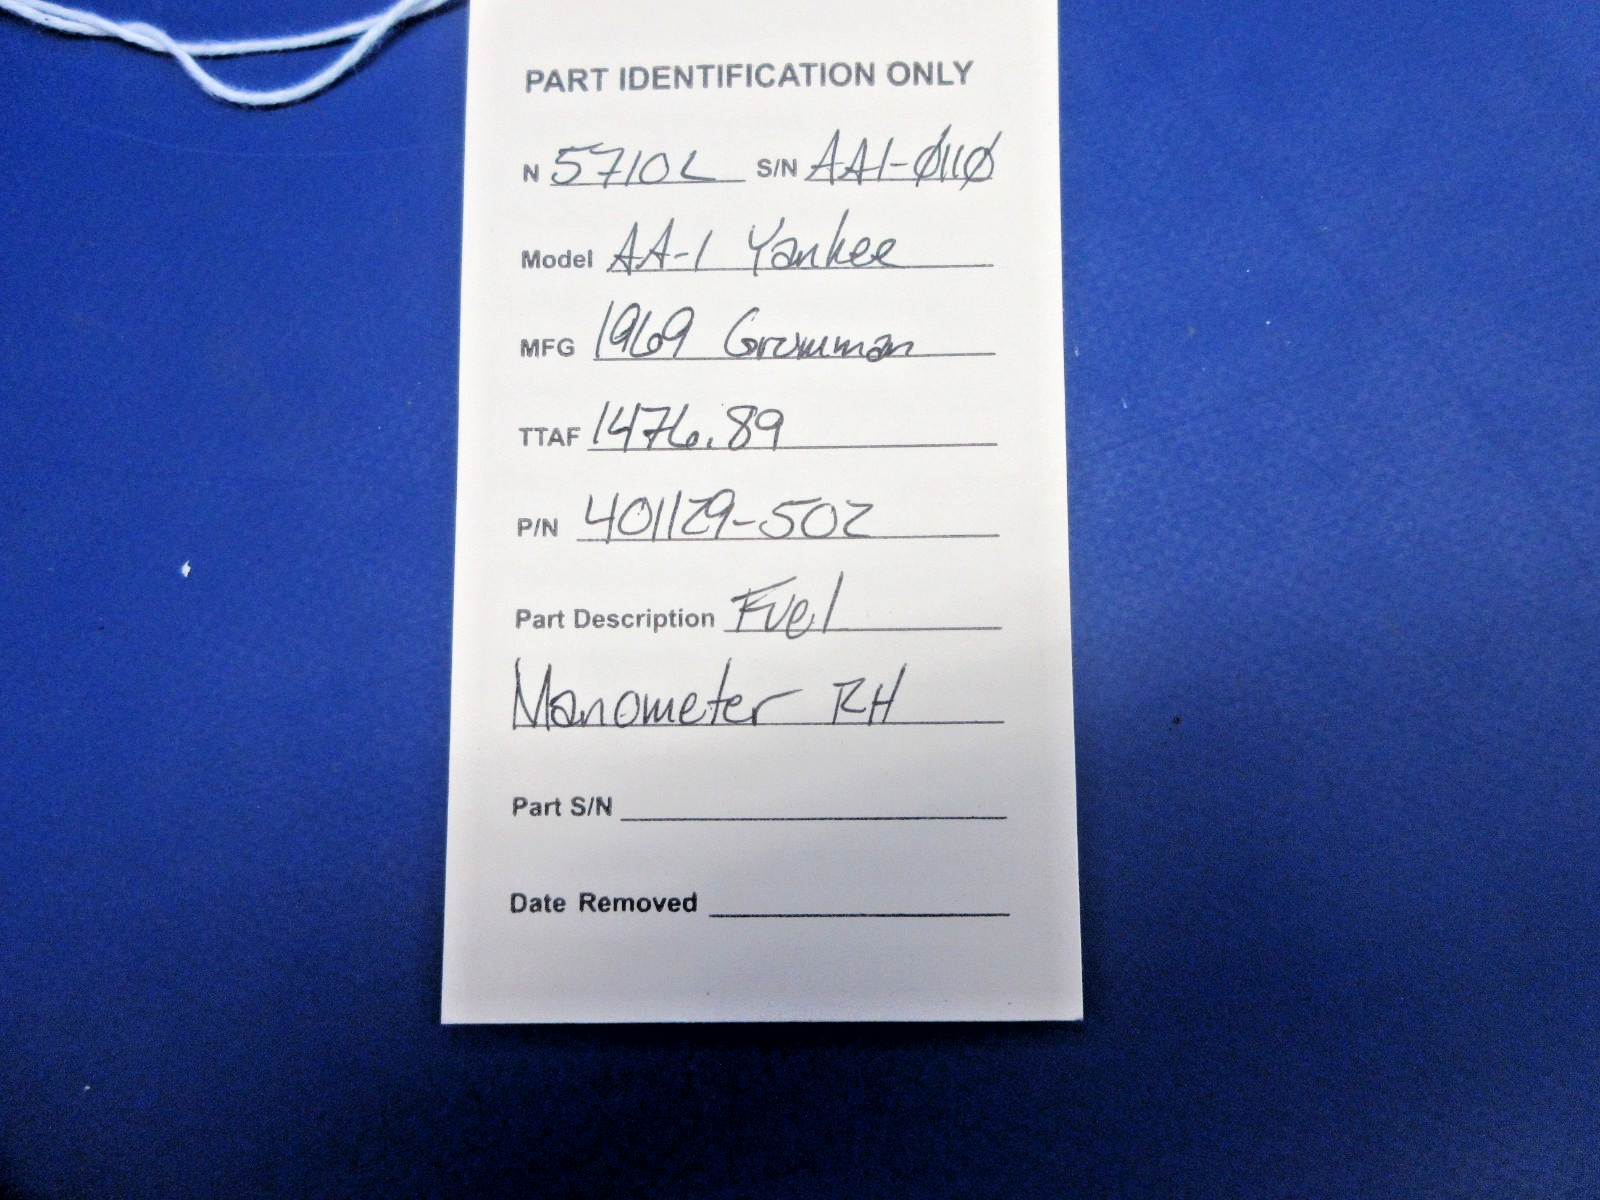 PART IDENTIFICATION ONLY
N 5710L S/N AA1-0110
Model AA-1 Yankee
MFG 1969 Grumman
TTAF 1476.89
P/N 401129-502
Part Description Fuel
Manometer RH
Part S/N
Date Removed